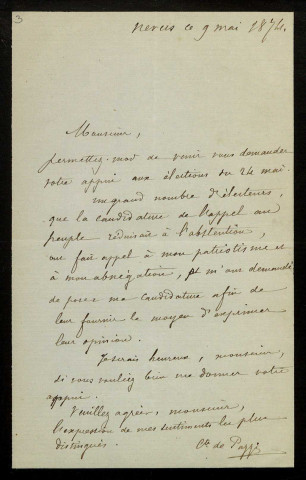 3
Nevers ce 9 mai 1874.
Monsieur,
permettez-moi de venir vous demander
votre appui aux élections du 24 mai.
Un grand nombre d'électeurs,
que la candidature de l'appel au
peuple réduisait à l'abstention,
ont fait appel à mon patriotisme et
à mon abnégation, et m'ont demandé
de poser ma candidature afin de
leur fournir le moyen d'exprimer
leur opinion.
Je serais heureux, monsieur,
si vous vouliez bien me donner votre
appui.
Veuillez agréer, monsieur,
l'expression de mes sentiments les plus
distingués.
Cte de Pazzis